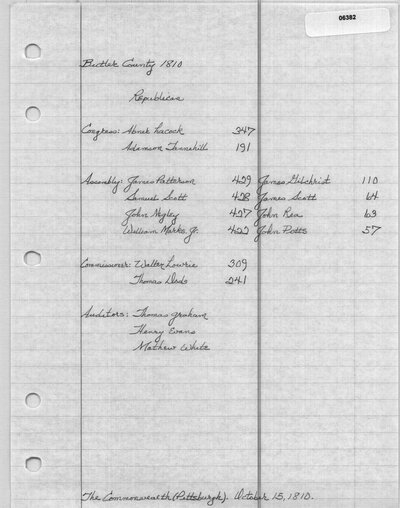 06382
Butler County 1810
Republican
Congress: Abner Lacock 347
Adamson Tannehill 191
Assembly: James Patterson 429 James Gilchrist 110
Samuel Scott 428 James Scott 64
John Negley 427 John Rea 63
William Marks Jr. 422 John Potts 57
Commissioner: Walter Lowrie 309
Thomas Dods 241
Auditors: Thomas Graham
Henry Evans
Mathew White
The Commonwealth (Pittsburgh). October 15, 1810.